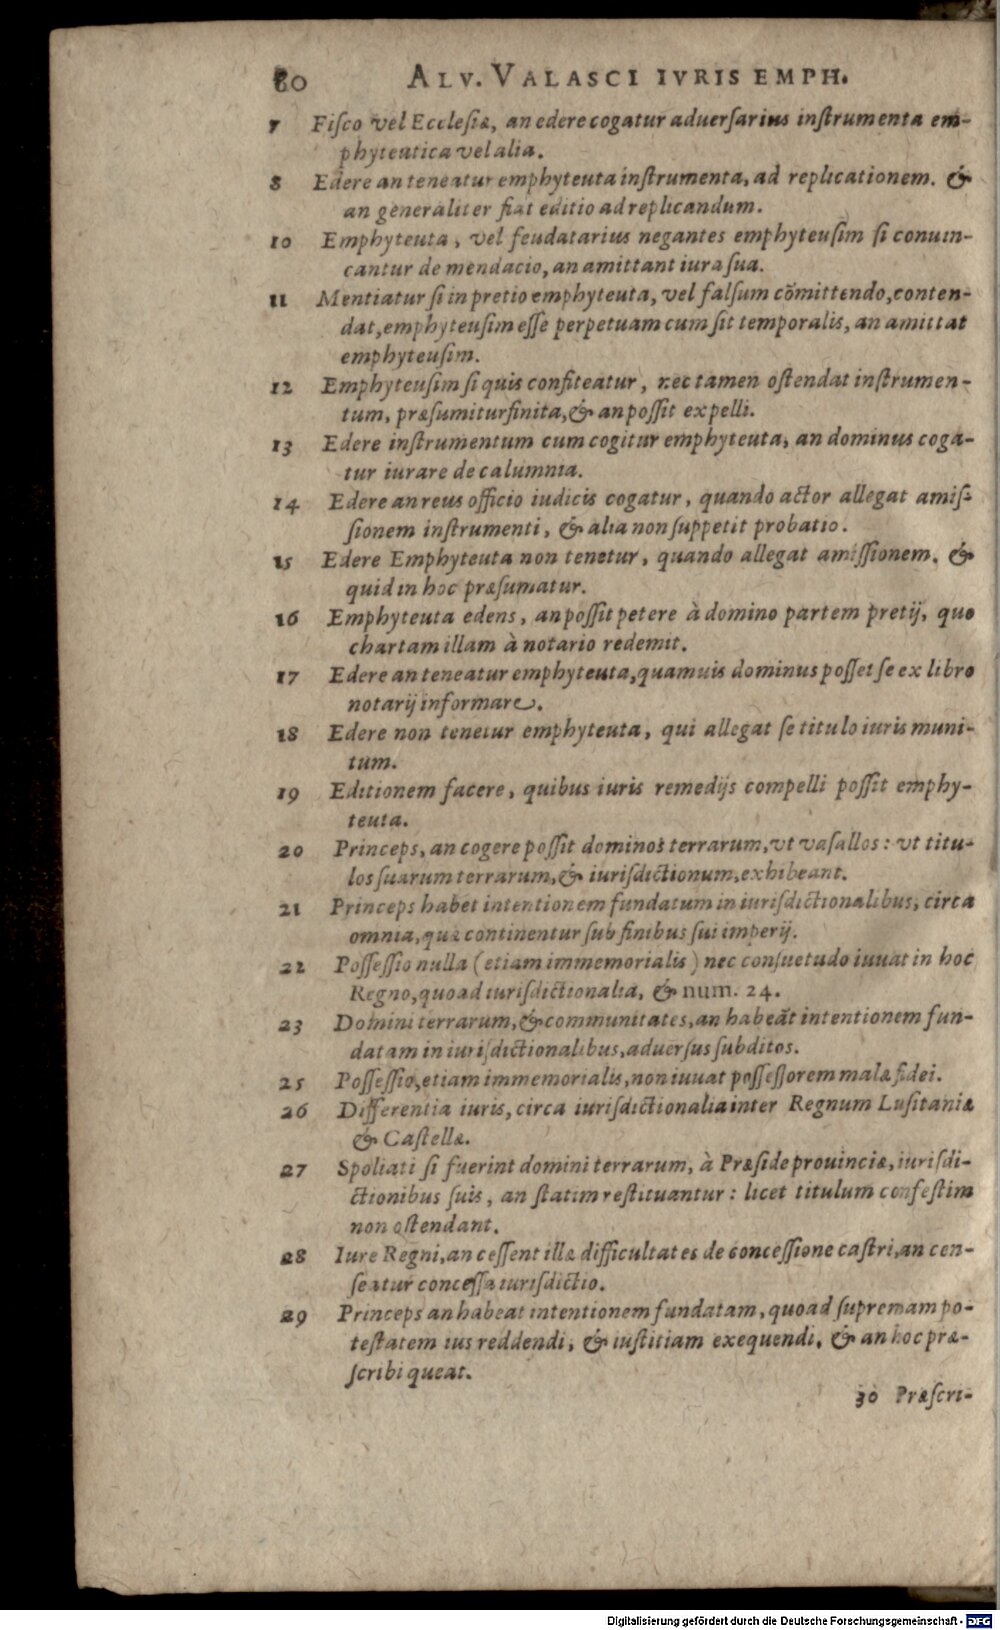 80 ALV. VALASCI IVRIS EMPH.
7 Fiſco vel Eccleſiæ, an edere cogatur aduerſarius inſtrumenta em-
phyteutica vel alia.
8 Edere an teneatur emphyteuta inſtrumenta, ad replicationem. &
an generaliter fiat editio ad replicandum.
10 Emphyteuta, vel feudatarius negantes emphyteuſim ſi conuin-
cantur de mendacio, an amittant iura ſua.
11 Mentiatur ſi in pretio emphyteuta, vel falſum cõmittendo, conten-
dat, emphyteuſim eſſe perpetuam cum ſit temporalis, an amittat
emphyteuſim.
12 Emphyteuſim ſi quis confiteatur, nec tamen oſtendat inſtrumen-
tum, præſumitur finita, & an poſſit expelli.
13 Edere inſtrumentum cum cogitur emphyteuta, an dominus coga-
tur iurare de calumnia.
14 Edere an reus officio iudicis cogatur, quando actor allegat amiſ-
ſionem inſtrumenti, & alia non ſuppetit probatio.
15 Edere Emphyteuta non tenetur, quando allegat amiſſionem. &
quid in hoc præſumatur.
16 Emphyteuta edens, an poſſit petere à domino partem pretij, quo
chartam illam à notario redemit.
17 Edere an teneatur emphyteuta, quamuis dominus poſſet ſe ex libro
notarij informare.
18 Edere non tenetur emphyteuta, qui allegat ſe titulo iuris muni-
tum.
19 Editionem facere, quibus iuris remedijs compelli poſſit emphy-
teuta.
20 Princeps, an cogere poſſit dominos terrarum, vt vaſallos: vt titu-
los ſuarum terrarum, & iuriſdictionum, exhibeant.
21 Princeps habet intentionem fundatum in iuriſdictionalibus, circa
omnia, quæ continentur ſub finibus ſui imperij.
22 Poſſeſſio nulla (etiam immemorialis) nec conſuetudo iuuat in hoc
Regno, quoad iuriſdictionalia, & num. 24.
23 Domini terrarum, & communitates, an habeãt intentionem fun-
datam in iuriſdictionalibus, aduerſus ſubditos.
25 Poſſeſſio, etiam immemorialis, non iuuat poſſeſſorem malæ fidei.
26 Differentia iuris, circa iuriſdictionalia inter Regnum Luſitaniæ
& Caſtellæ.
27 Spoliati ſi fuerint domini terrarum, à Præſide prouinciæ, iuriſdi-
ctionibus ſuis, an ſtatim reſtituantur: licet titulum confeſtim
non oſtendant.
28 Iure Regni, an ceſſent illæ difficultates de conceſſione caſtri, an cen-
ſeatur conceſſa iuriſdictio.
29 Princeps an habeat intentionem fundatam, quoad ſupremam po-
teſtatem ius reddendi, & iuſtitiam exequendi, & an hoc præ-
ſcribi queat.
30 Præſcri-
Digitalisierung gefördert durch die Deutsche Forschungsgemeinschaft - DFG